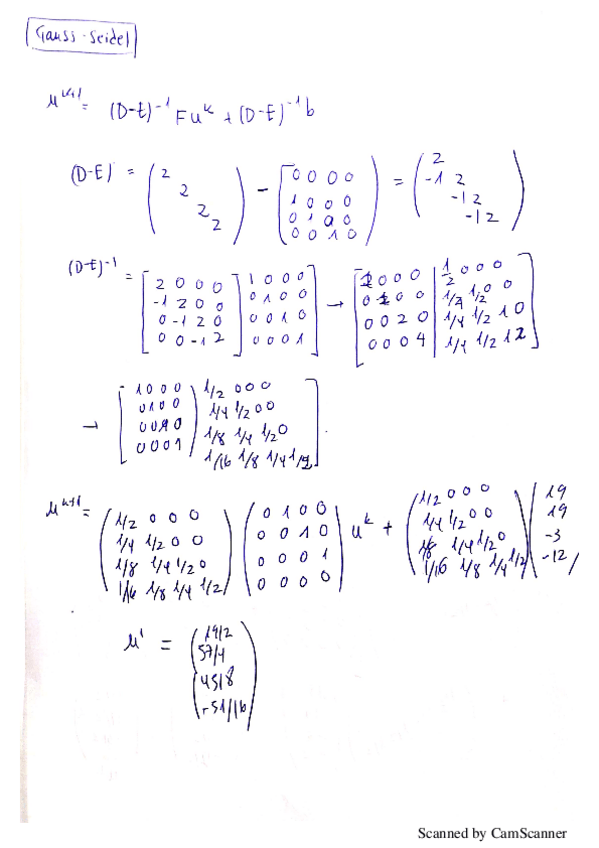 Gauss-Seidel
u^{k+1} = (D-E)^{-1} F u^k + (D-E)^{-1} b
(D-E) = ( 2 2 2 2 ) - [ 0 0 0 0 ; 1 0 0 0 ; 0 1 0 0 ; 0 0 1 0 ) = ( 2 ; -1 2 ; -1 2 ; -1 2 )
(D-E)^{-1} = [ 2 0 0 0 ; -1 2 0 0 ; 0 -1 2 0 ; 0 0 -1 2 | 1 0 0 0 ; 0 1 0 0 ; 0 0 1 0 ; 0 0 0 1 ] → [ 0 0 0 ; 0 0 0 ; 0 0 2 0 ; 0 0 0 4 | 1/2 0 0 0 ; 1/4 1/2 0 0 ; 1/4 1/2 1 0 ; 1/4 1/2 1 2 ]
→ [ 1 0 0 0 ; 0 1 0 0 ; 0 0 1 0 ; 0 0 0 1 | 1/2 0 0 0 ; 1/4 1/2 0 0 ; 1/8 1/4 1/2 0 ; 1/16 1/8 1/4 1/2 ].
u^{k+1} = ( 1/2 0 0 0 ; 1/4 1/2 0 0 ; 1/8 1/4 1/2 0 ; 1/16 1/8 1/4 1/2 ) ( 0 1 0 0 ; 0 0 1 0 ; 0 0 0 1 ; 0 0 0 0 ) u^k + ( 1/2 0 0 0 ; 1/4 1/2 0 0 ; 1/8 1/4 1/2 0 ; 1/16 1/8 1/4 1/2 ) ( 19 ; 19 ; -3 ; -12 )
u^1 = ( 19/2 ; 57/4 ; 45/8 ; -51/16 )
Scanned by CamScanner